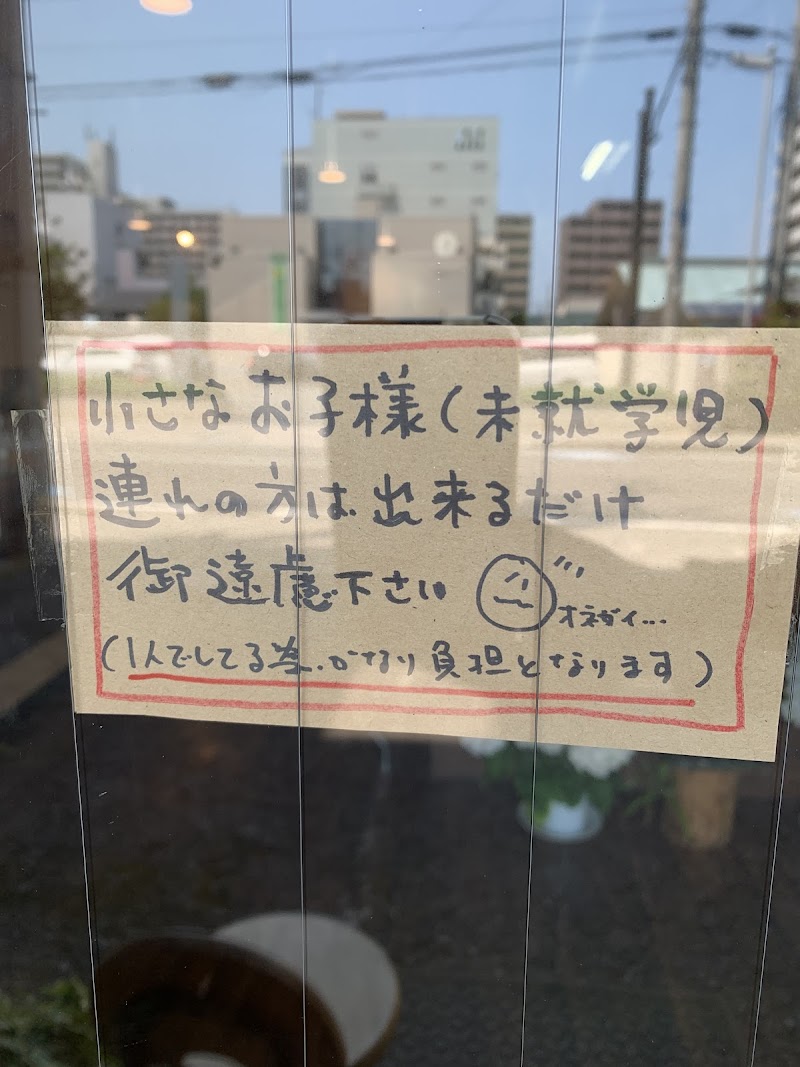 小さなお子様(未就学児)
連れの方は出来るだけ
御遠慮下さい
オネガイ...
(1人でしてる為、かなり負担となります)